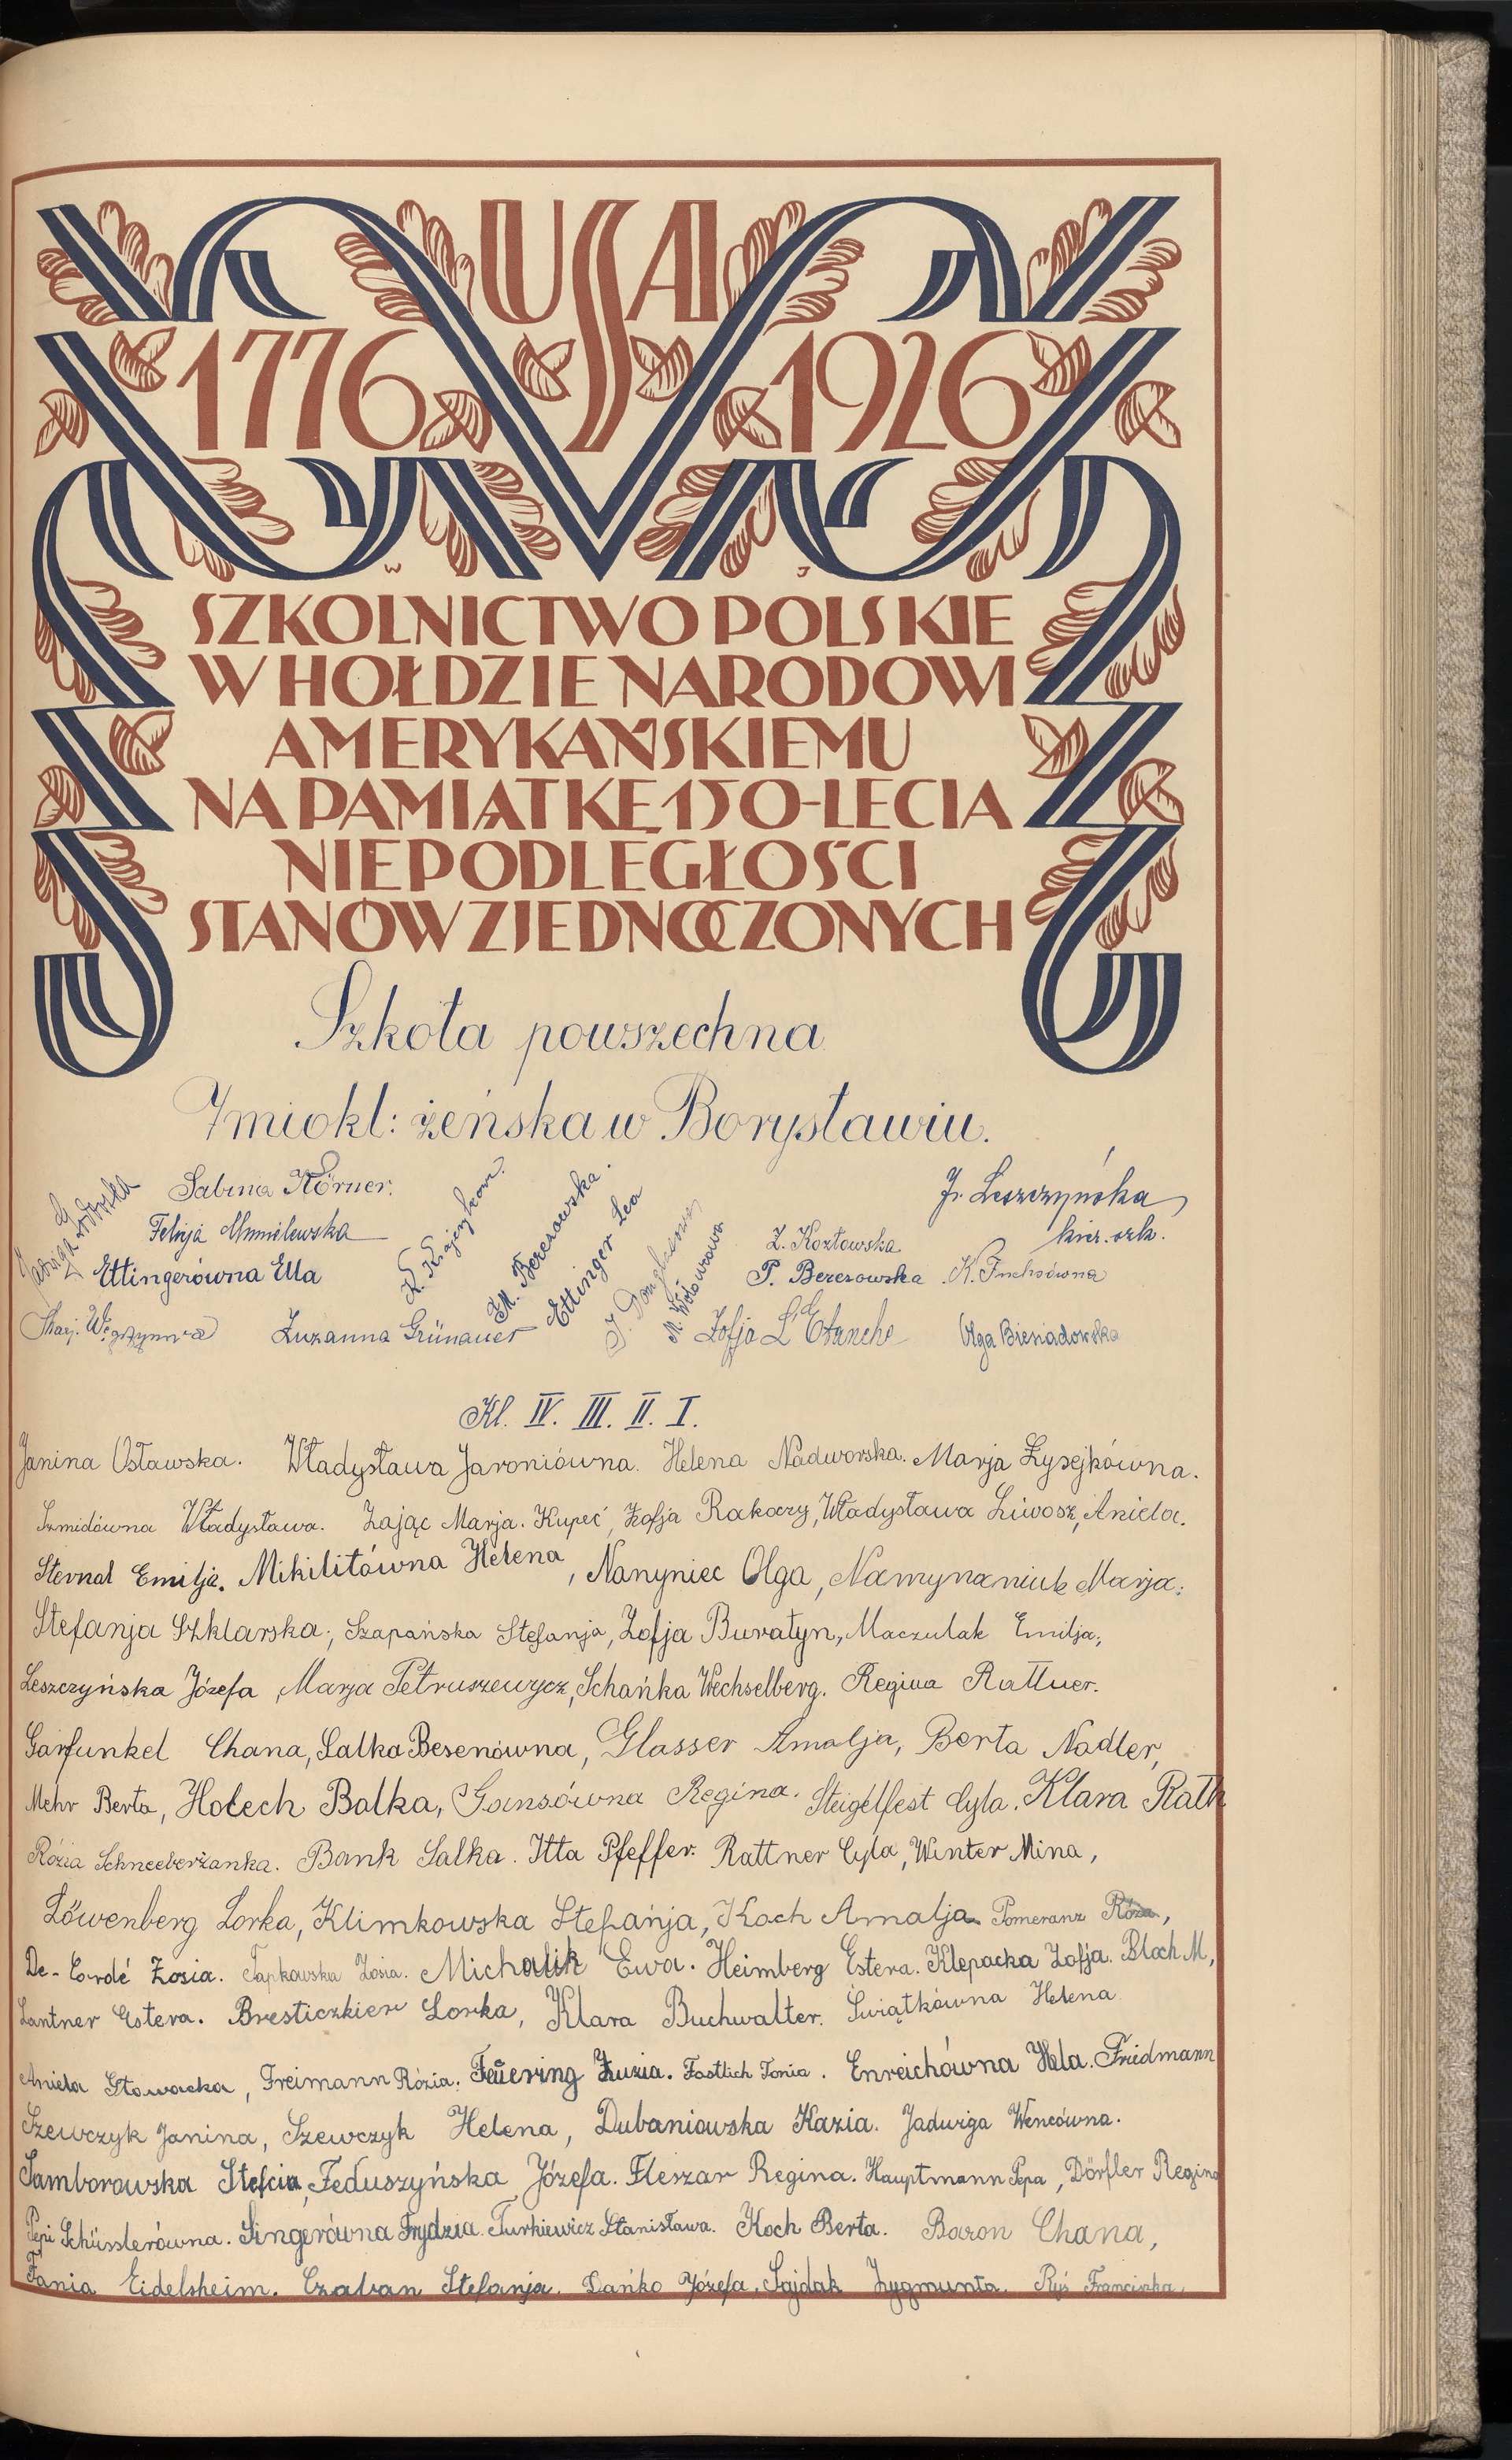 USA
1776 1926
W J
SZKOLNICTWO POLSKIE
W HOŁDZIE NARODOWI
AMERYKAŃSKIEMU
NA PAMIĄTKĘ 150-LECIA
NIEPODLEGŁOŚCI
STANÓW ZJEDNOCZONYCH
Szkoła powszechna
7miokl: żeńska w Borysławiu.
Jadwiga
Sabina Körner.
Felicja
Ettingerówna Ella
M. Berezowska.
Ettinger Lea
M. Wołowzowa
Z. Kozłowska
P. Berezowska
J. Leszczyńska
kier. szk.
K. Fuchsówna
Marj. Węgrzynowa
Zuzanna Grünauer
Zofja L'Etanche
Olga Bieniadowska
Kl. IV. III. II. I.
Janina Osławska. Władysława Jaroniówna. Helena Nadworska. Marja Łysejkówna.
Szmidówna Władysława. Zając Marja. Kupeć, Zofja Rakoczy, Władysława Liwosz, Aniela.
Sternal Emilja. Mikilitówna Helena, Nanyniec Olga, Namynaniuk Marja;
Stefanja Szklarska; Szapańska Stefanja, Zofja Buratyn, Maczulak Emilja;
Leszczyńska Józefa, Marja Petruszewycz, Schańka Wechselberg. Regina Rattner.
Garfunkel Chana, Salka Besenówna, Glasser Amalja, Berta Nadler,
Mehr Berta, Hotech Balka, Gansówna Regina. Steigelfest Cyla. Klara Rath
Rózia Schneeberżanka. Bank Salka. Itta Pfeffer. Rattner Cyla, Winter Mina,
Löwenberg Lorka, Klimkowska Stefanja, Koch Amalja Pomeranz Róża,
De-Cordé Zosia. Łapkowska Zosia. Michalik Ewa. Heimberg Estera. Klepacka Zofja. Bloch M,
Lantner Estera. Bresticzkier Lorka, Klara Buchwalter. Świątkówna Helena
Aniela Słowacka, Freimann Rózia. Feuering Zuzia. Fastlich Tonia. Enreichówna Hela. Friedmann
Szewczyk Janina, Szewczyk Helena, Dubaniowska Kazia. Jadwiga Wencówna.
Samborowska Stefcia, Feduszyńska Józefa. Fleszar Regina. Hauptmann Pepa, Dörfler Regina
Pepi Schüsslerówna. Singerówna Frydzia. Turkiewicz Stanisława. Koch Berta. Baron Chana,
Fania Eidelsheim. Czaban Stefanja. Dańko Józefa. Sajdak Zygmunta. Ryś Franciszka.